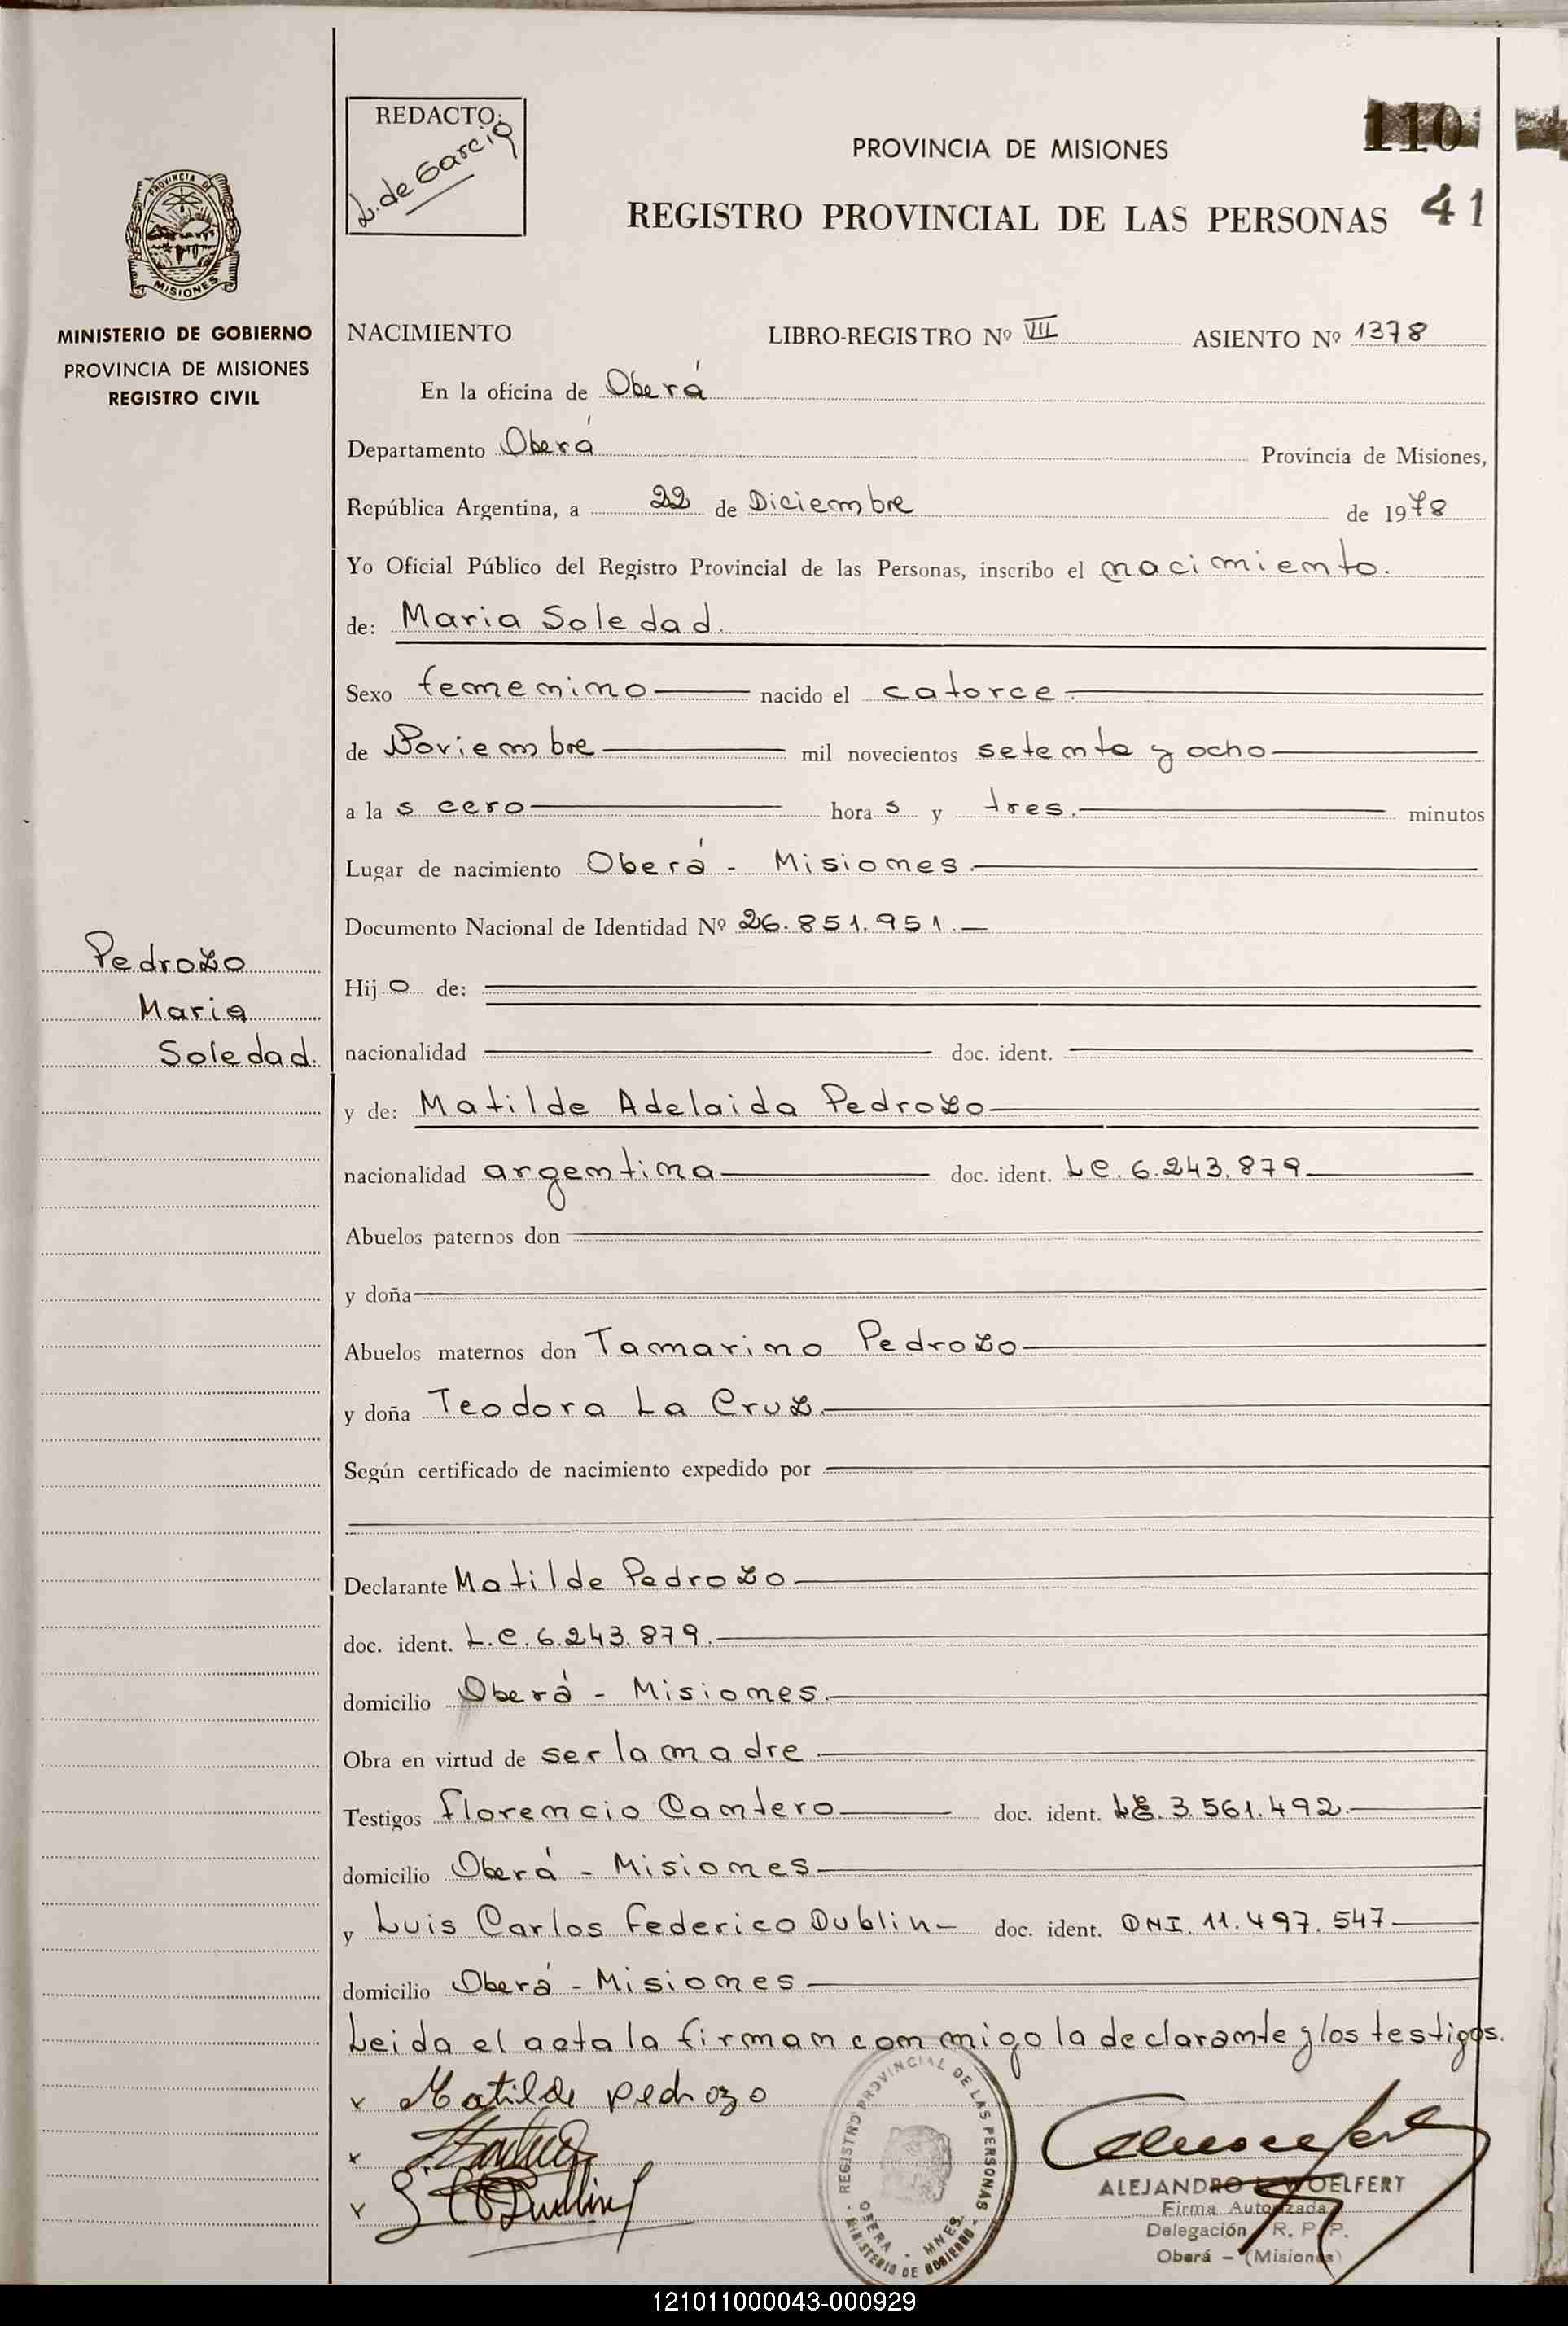 REDACTO:
L. de Garcia
PROVINCIA DE MISIONES
110
REGISTRO PROVINCIAL DE LAS PERSONAS 41
PROVINCIA DE
MISIONES
MINISTERIO DE GOBIERNO
PROVINCIA DE MISIONES
REGISTRO CIVIL
NACIMIENTO LIBRO-REGISTRO Nº VII ASIENTO Nº 1378
En la oficina de Oberá
Departamento Oberá Provincia de Misiones,
República Argentina, a 22 de Diciembre de 1978
Yo Oficial Público del Registro Provincial de las Personas, inscribo el nacimiento.
de: Maria Soledad.
Sexo femenino nacido el catorce
de Noviembre mil novecientos setenta y ocho
a las cero horas y tres. minutos
Lugar de nacimiento Oberá - Misiones.
Documento Nacional de Identidad Nº 26.851.951.
Pedrozo
Maria
Soledad.
Hijo de:
nacionalidad doc. ident.
y de: Matilde Adelaida Pedrozo
nacionalidad argentina doc. ident. LC. 6.243.879
Abuelos paternos don
y doña
Abuelos maternos don Tamarino Pedrozo
y doña Teodora La Cruz.
Según certificado de nacimiento expedido por
Declarante Matilde Pedrozo
doc. ident. L.C. 6.243.879.
domicilio Oberá - Misiones.
Obra en virtud de ser la madre
Testigos Florencio Cantero doc. ident. LE. 3.561.492.
domicilio Oberá - Misiones
y Luis Carlos Federico Dublin doc. ident. DNI. 11.497.547
domicilio Oberá - Misiones
Leida el acta la firman conmigo la declarante y los testigos.
x Matilde pedrozo
x
x
REGISTRO PROVINCIAL DE LAS PERSONAS
OBERA - MNES.
MINISTERIO DE GOBIERNO
ALEJANDRO L. WOELFERT
Firma Autorizada
Delegación R. P. P.
Oberá - (Misiones)
121011000043-000929